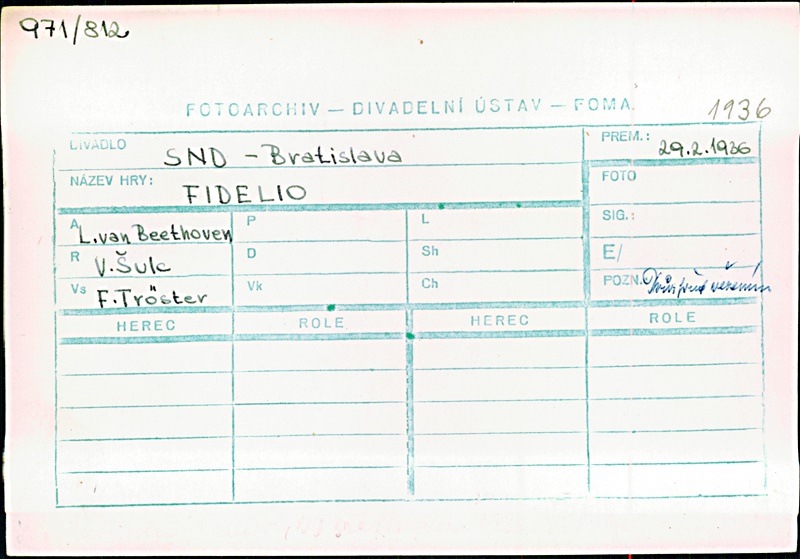 971/812
FOTOARCHIV — DIVADELNÍ ÚSTAV — FOMA 1936
DIVADLO SND - Bratislava PREM.: 29.2.1936
NÁZEV HRY: FIDELIO FOTO
A L.van Beethoven P L SIG.:
R V.Šulc D Sh E/
Vs F.Tröster Vk Ch POZN.:
HEREC ROLE HEREC ROLE